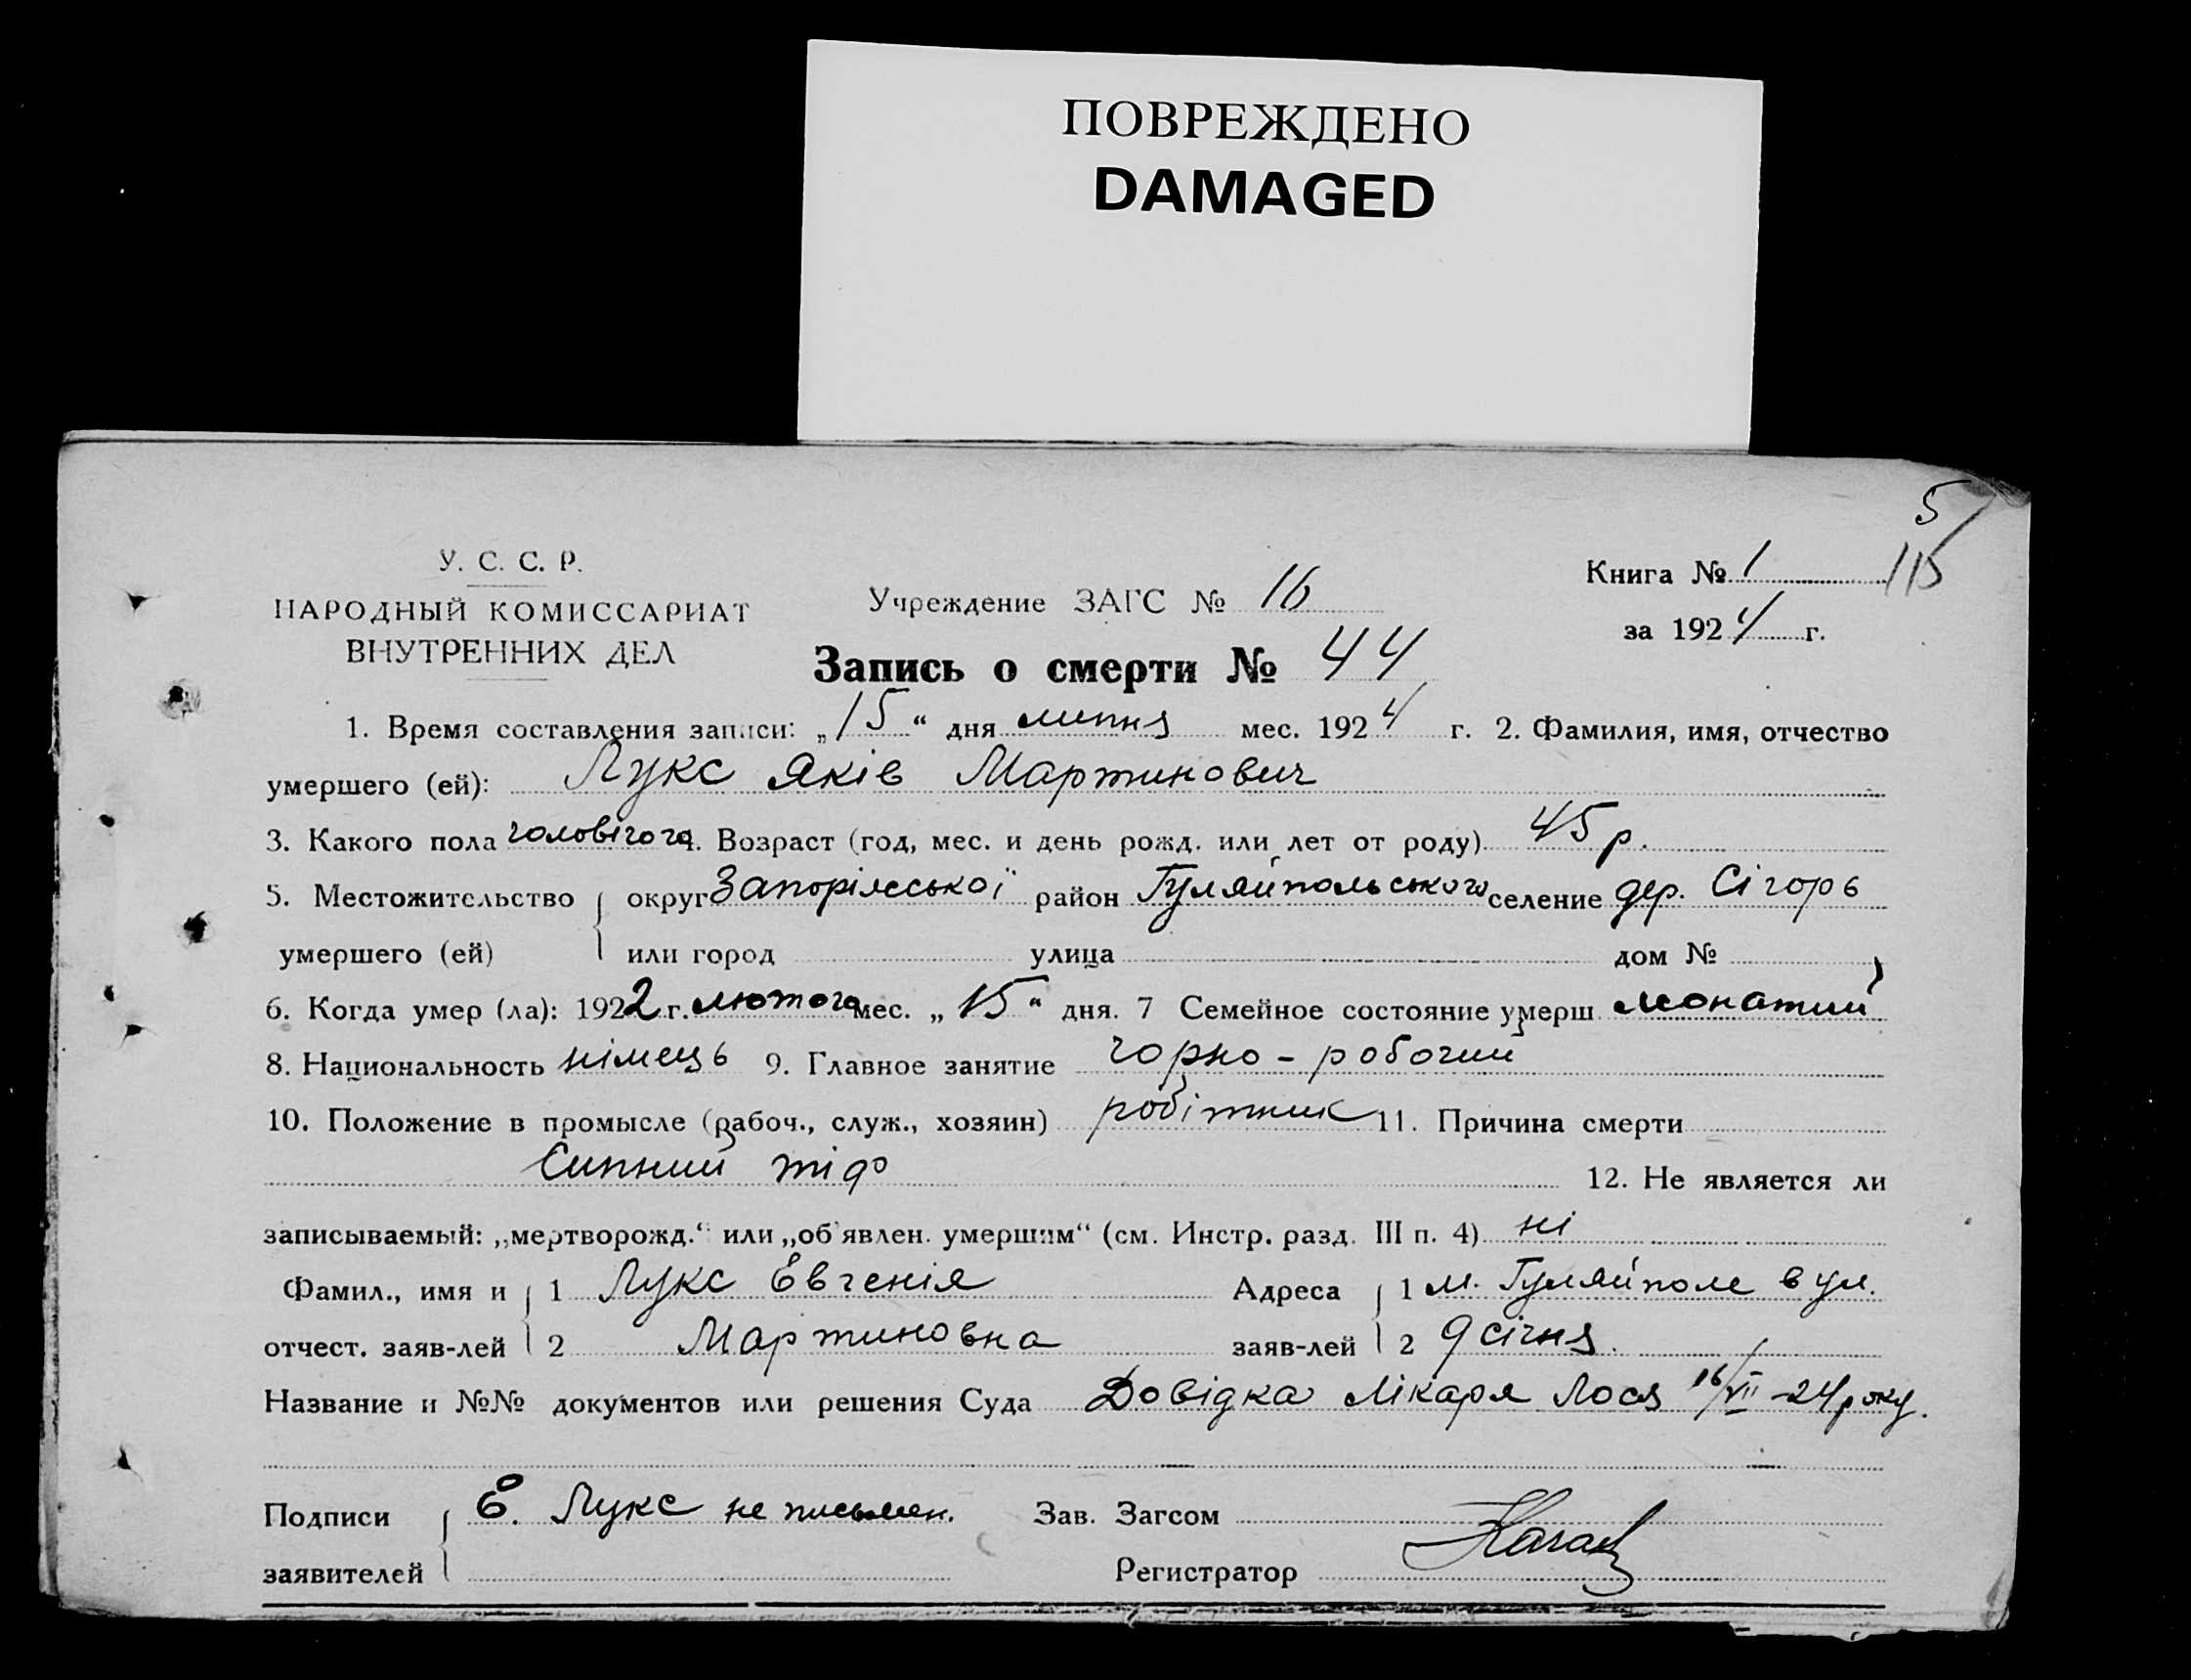 ПОВРЕЖДЕНО
DAMAGED
5/115
У. С. С. Р.
НАРОДНЫЙ КОМИССАРИАТ
ВНУТРЕННИХ ДЕЛ
Учреждение ЗАГС № 16
Книга № 1
за 1924 г.
Запись о смерти № 44
1. Время составления записи: „15“ дня липня мес. 1924 г. 2. Фамилия, имя, отчество
умершего (ей): Лукс Яків Мартинович
3. Какого пола чоловічого. Возраст (год, мес. и день рожд. или лет от роду) 45 р.
5. Местожительство округ Запоріжської район Гуляйпольського селение дер. Сігорь
умершего (ей) или город улица дом №
6. Когда умер (ла): 1922 г. лютого мес. „15“ дня. 7 Семейное состояние умерш. жонатий
8. Национальность німець 9. Главное занятие чорно-робочий
10. Положение в промысле (рабоч., служ., хозяин) робітник 11. Причина смерти
Сипний тіф 12. Не является ли
записываемый: „мертворожд.“ или „об'явлен. умершим“ (см. Инстр. разд. III п. 4) ні
Фамил., имя и 1 Лукс Евгенія Адреса 1 м. Гуляйполе вул.
отчест. заяв-лей 2 Мартиновна заяв-лей 2 9 січня.
Название и №№ документов или решения Суда Довідка лікаря Лося 16/VII-24 року.
Подписи Е. Лукс не письмен. Зав. Загсом
заявителей Регистратор